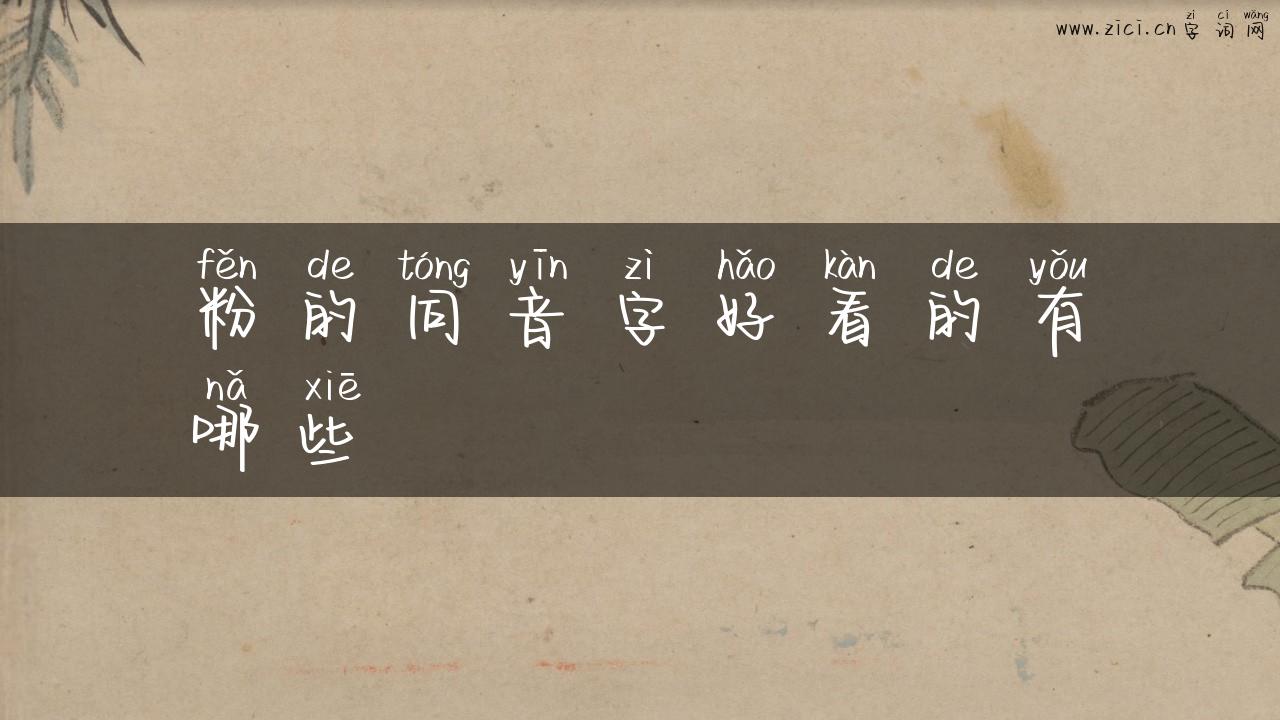 zì cí wǎng
www.zici.cn 字词网
fěn de tóng yīn zì hǎo kàn de yǒu
粉的同音字好看的有
nǎ xiē
哪些